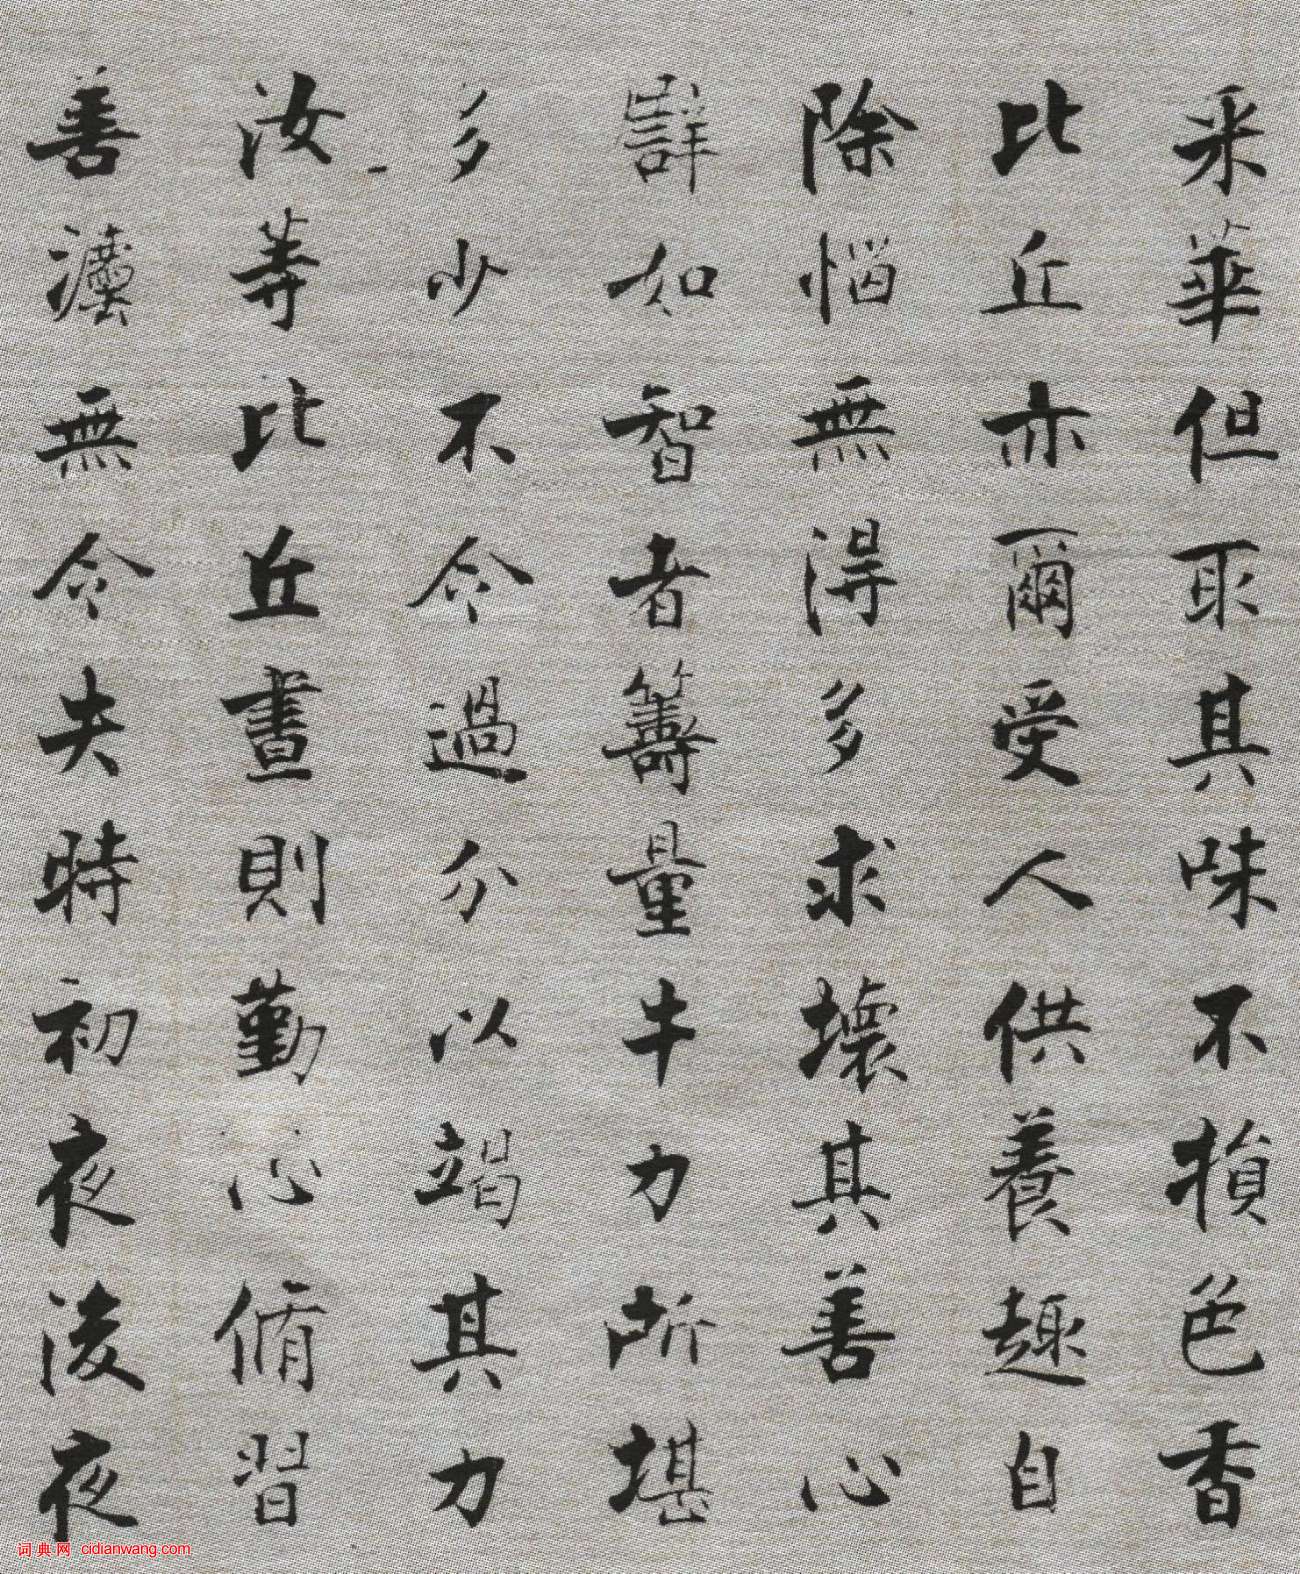 采華但取其味不損色香
比丘亦爾受人供養趣自
除惱無得多求壞其善心
譬如智者籌量牛力所堪
多少不令過分以竭其力
汝等比丘晝則勤心脩習
善灋無令失時初夜後夜
词典网 cidianwang.com